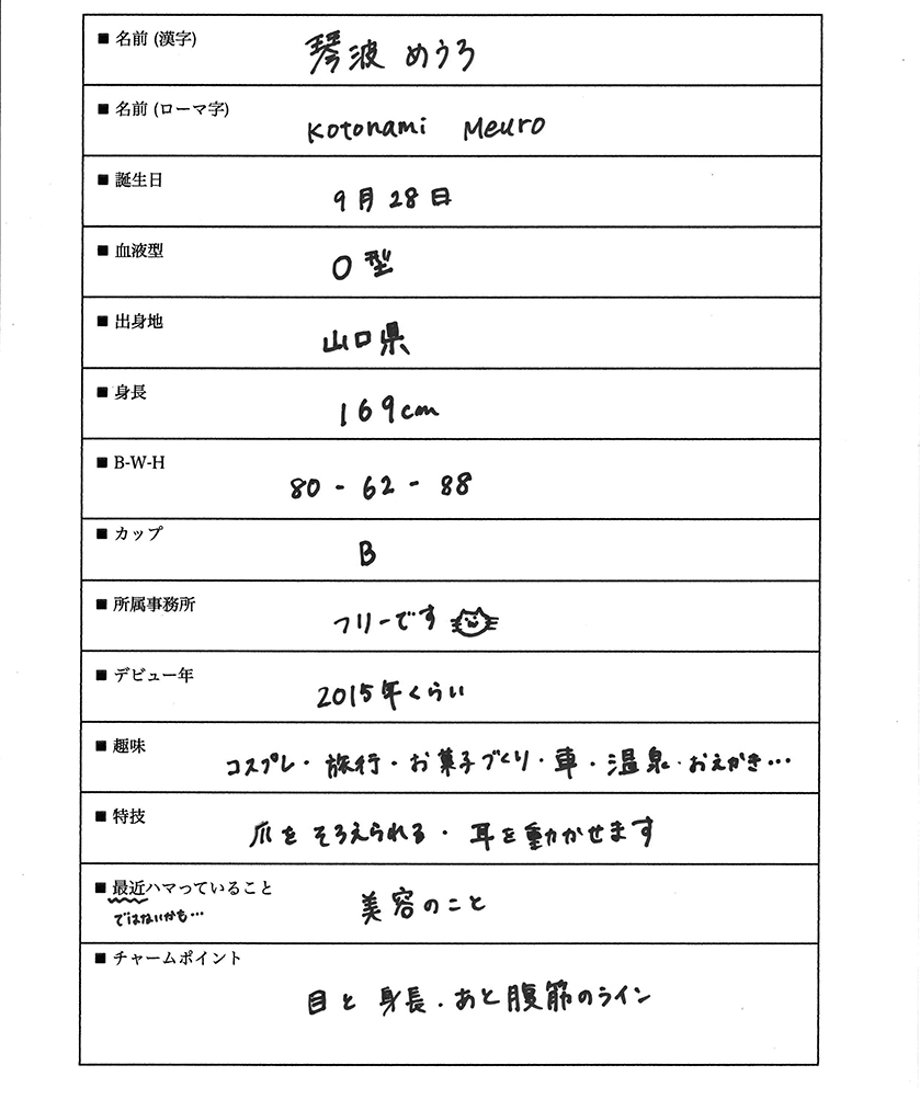 ■ 名前 (漢字)
琴波 めうろ
■ 名前 (ローマ字)
Kotonami Meuro
■ 誕生日
9月28日
■ 血液型
O型
■ 出身地
山口県
■ 身長
169cm
■ B-W-H
80 - 62 - 88
■ カップ
B
■ 所属事務所
フリーです
■ デビュー年
2015年くらい
■ 趣味
コスプレ・旅行・お菓子づくり・車・温泉・おえかき…
■ 特技
爪をそろえられる・耳を動かせます
■ 最近ハマっていること
ではないかも…
美容のこと
■ チャームポイント
目と身長・あと腹筋のライン